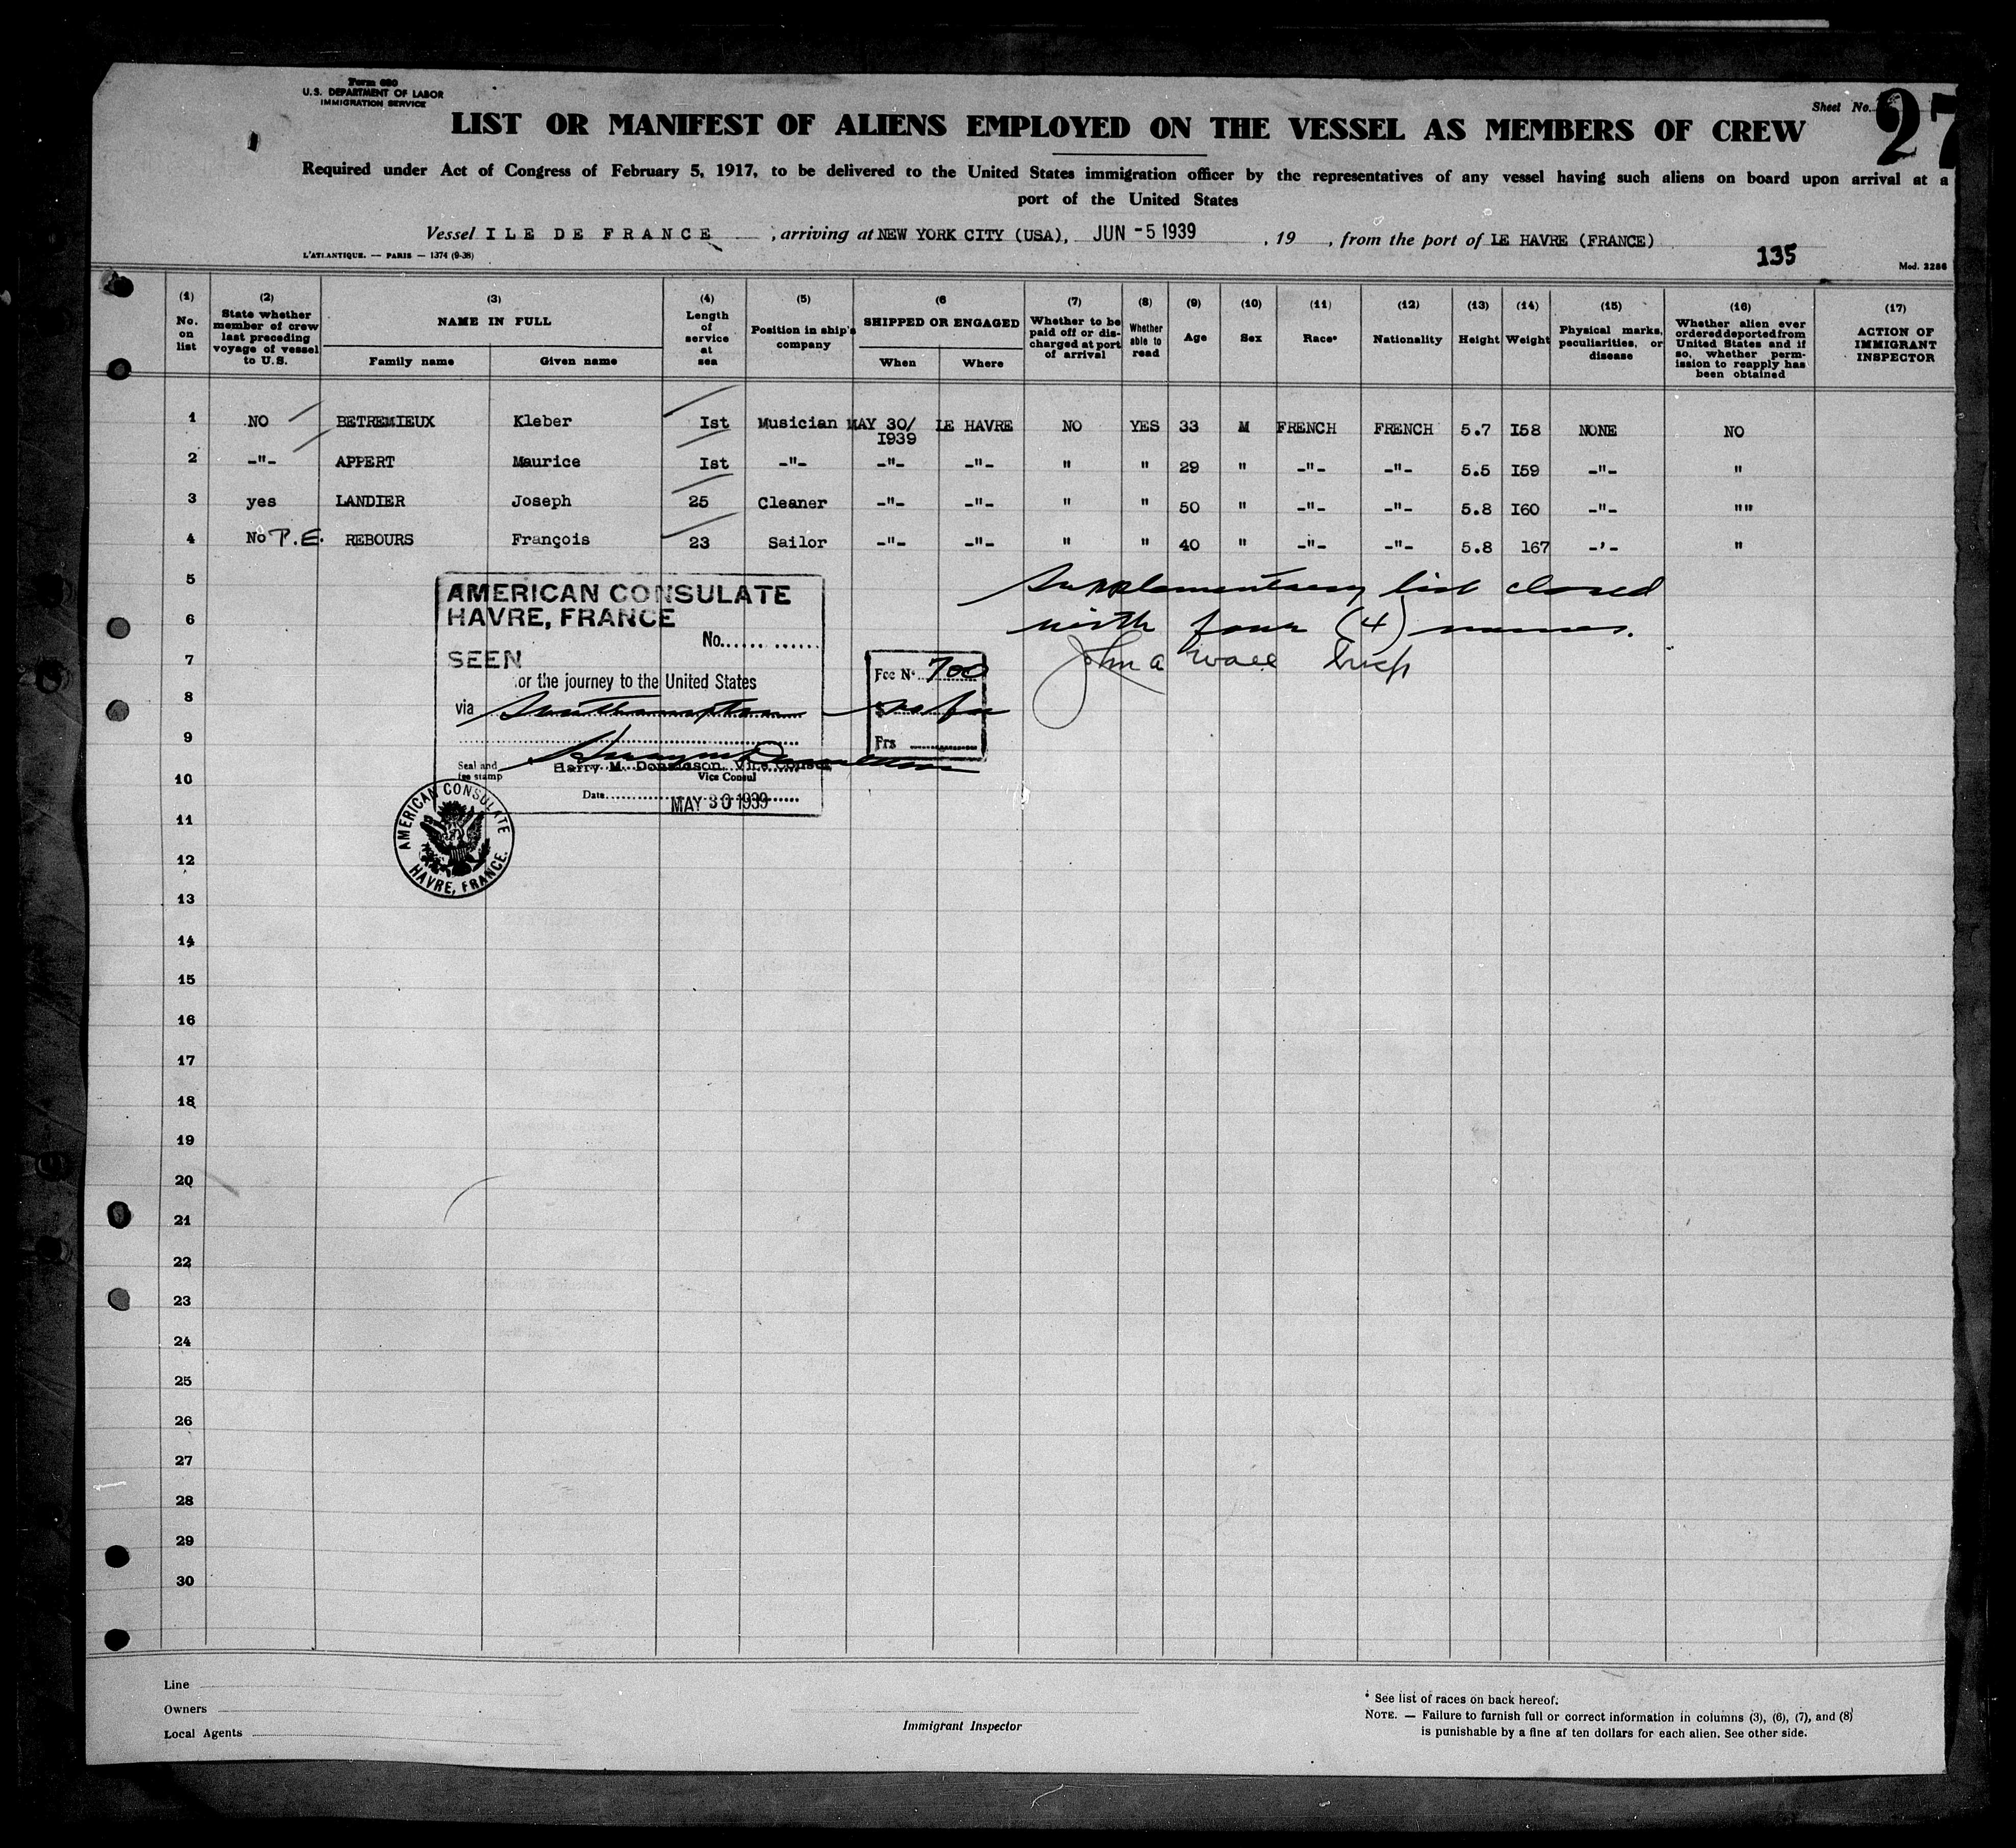 Form 680
U.S. DEPARTMENT OF LABOR
IMMIGRATION SERVICE
Sheet No. 27
LIST OR MANIFEST OF ALIENS EMPLOYED ON THE VESSEL AS MEMBERS OF CREW
Required under Act of Congress of February 5, 1917, to be delivered to the United States immigration officer by the representatives of any vessel having such aliens on board upon arrival at a
port of the United States
Vessel ILE DE FRANCE, arriving at NEW YORK CITY (USA), JUN -5 1939, 19, from the port of LE HAVRE (FRANCE)
L'ATLANTIQUE. — PARIS — 1374 (9-38)
135
Mod. 2286
(1) No. on list
(2) State whether member of crew last preceding voyage of vessel to U.S.
(3) NAME IN FULL
Family name Given name
(4) Length of service at sea
(5) Position in ship's company
(6 SHIPPED OR ENGAGED
When Where
(7) Whether to be paid off or discharged at port of arrival
(8) Whether able to read
(9) Age
(10) Sex
(11) Race*
(12) Nationality
(13) Height
(14) Weight
(15) Physical marks, peculiarities, or disease
(16) Whether alien ever ordered deported from United States and if so, whether permission to reapply has been obtained
(17) ACTION OF IMMIGRANT INSPECTOR
1 NO BETREMIEUX Kleber Ist Musician MAY 30/ I939 LE HAVRE NO YES 33 M FRENCH FRENCH 5.7 I58 NONE NO
2 -"- APPERT Maurice Ist -"- -"- -"- " " 29 " -"- -"- 5.5 I59 -"- "
3 yes LANDIER Joseph 25 Cleaner -"- -"- " " 50 " -"- -"- 5.8 I60 -"- ""
4 No P.E. REBOURS François 23 Sailor -"- -"- " " 40 " -"- -"- 5.8 167 -'- "
5
6
7
8
9
10
11
12
13
14
15
16
17
18
19
20
21
22
23
24
25
26
27
28
29
30
Supplementary list closed
with four (4) names.
John a Wall
AMERICAN CONSULATE
HAVRE, FRANCE
No.
SEEN
or the journey to the United States
via Southampton
Fee No. 700
$ no fee
Frs
Seal and fee stamp
Harry M. Donaldson, Vice Consul
Vice Consul
Date MAY 30 1939
AMERICAN CONSULATE
HAVRE, FRANCE.
Line
Owners
Local Agents
Immigrant Inspector
* See list of races on back hereof.
NOTE. — Failure to furnish full or correct information in columns (3), (6), (7), and (8)
is punishable by a fine af ten dollars for each alien. See other side.